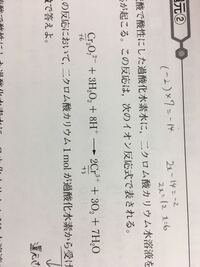 元②
(-2)×7=-14
2x-14=-2
2x=12 x=6
酸で酸性にした過酸化水素水に,二クロム酸カリウム水溶液を
が起こる。この反応は,次のイオン反応式で表される。
Cr₂O₇²⁻ + 3H₂O₂ + 8H⁺ ⟶ 2Cr³⁺ + 3O₂ + 7H₂O
+6 +3
の反応において,二クロム酸カリウム 1 mol が過酸化水素から受け
で答えよ。